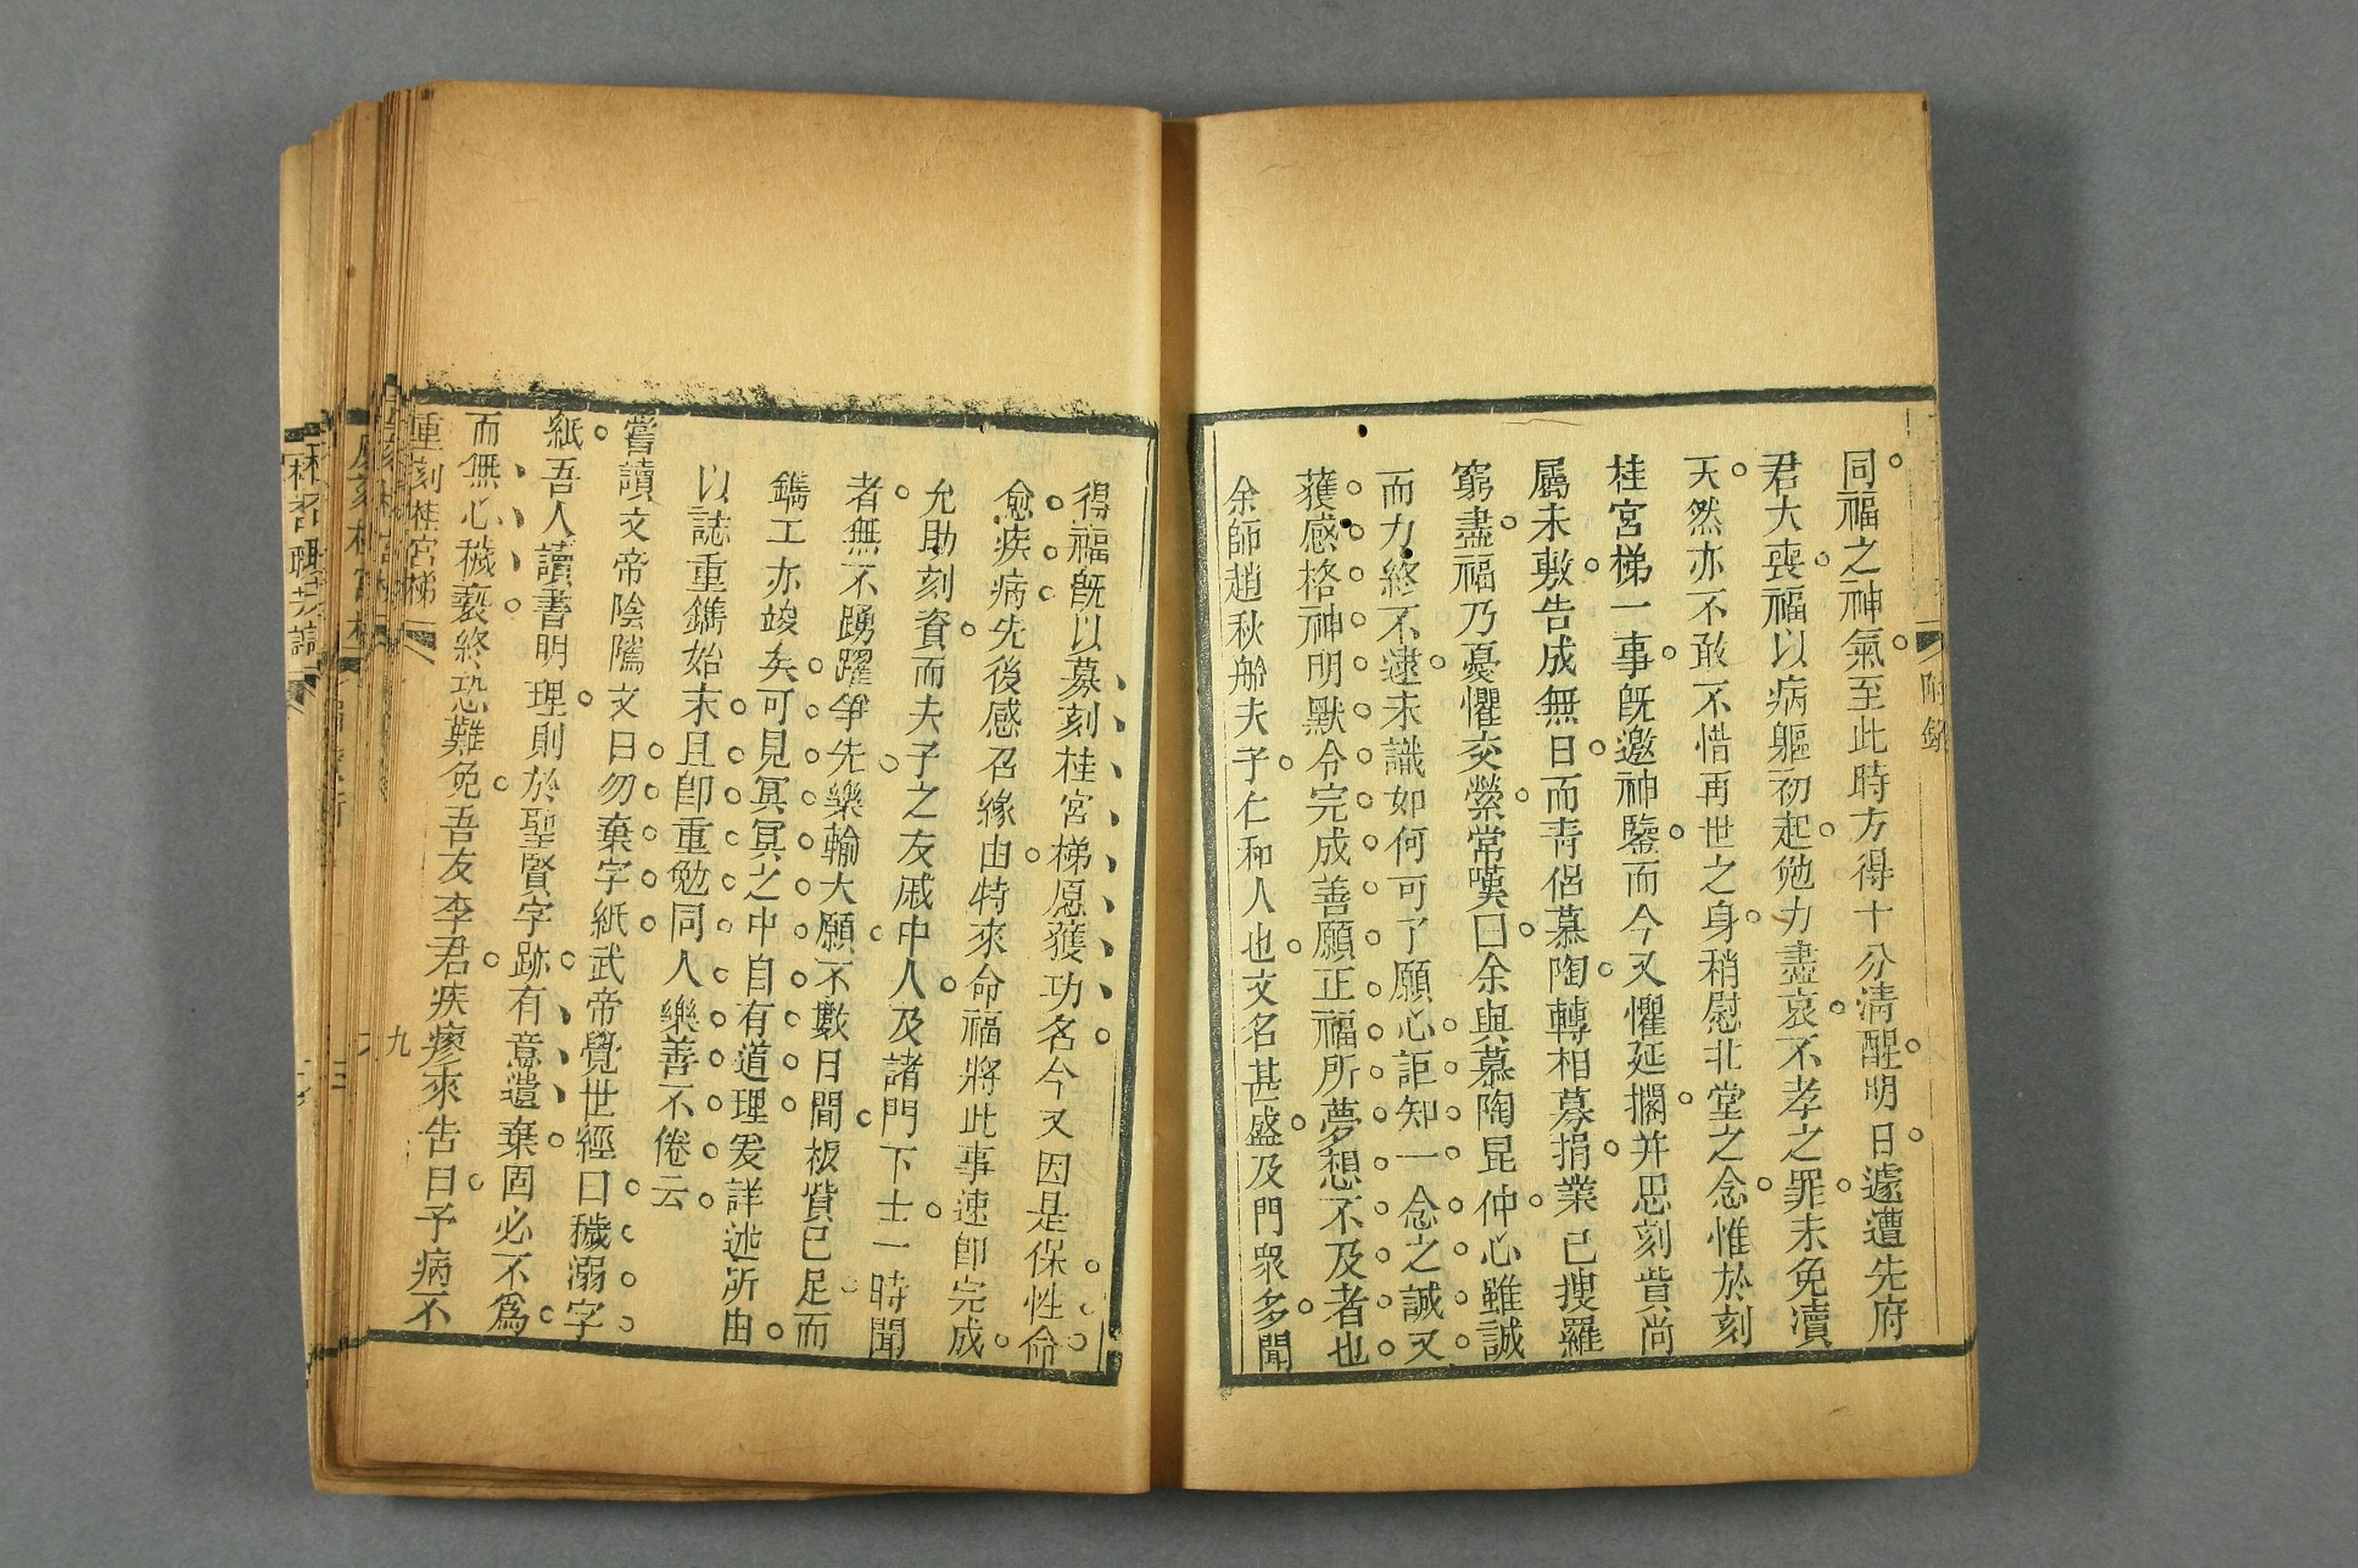 同福之神氣至此時方得十分清醒明日遽遭先府
君大喪福以病軀初起勉力盡哀不孝之罪未免瀆
天然亦不敢不惜再世之身稍慰北堂之念惟於刻
桂宮梯一事旣邀神鑒而今又懼延擱并思刻貲尚
屬未敷告成無日而青侶慕陶轉相募捐業已搜羅
窮盡福乃憂懼交縈常嘆曰余與慕陶昆仲心雖誠
而力終不逮未識如何可了願心詎知一念之誠又
獲感格神明默令完成善願正福所夢想不及者也
余師趙秋舲夫子仁和人也文名甚盛及門眾多聞
附錄
得福旣以募刻桂宮梯愿獲功名今又因是保性命
愈疾病先後感召緣由特來命福將此事速卽完成
允助刻資而夫子之友戚中人及諸門下士一時聞
者無不踴躍爭先樂輸大願不數日間板貲已足而
鐫工亦竣矣可見冥冥之中自有道理爰詳述所由
以誌重鐫始末且卽重勉同人樂善不倦云
嘗讀文帝陰隲文曰勿棄字紙武帝覺世經曰穢溺字
紙吾人讀書明理則於聖賢字跡有意遺棄固必不爲
而無心穢褻終恐難免吾友李君疾瘳來告曰予病不
重刻桂宮梯
九